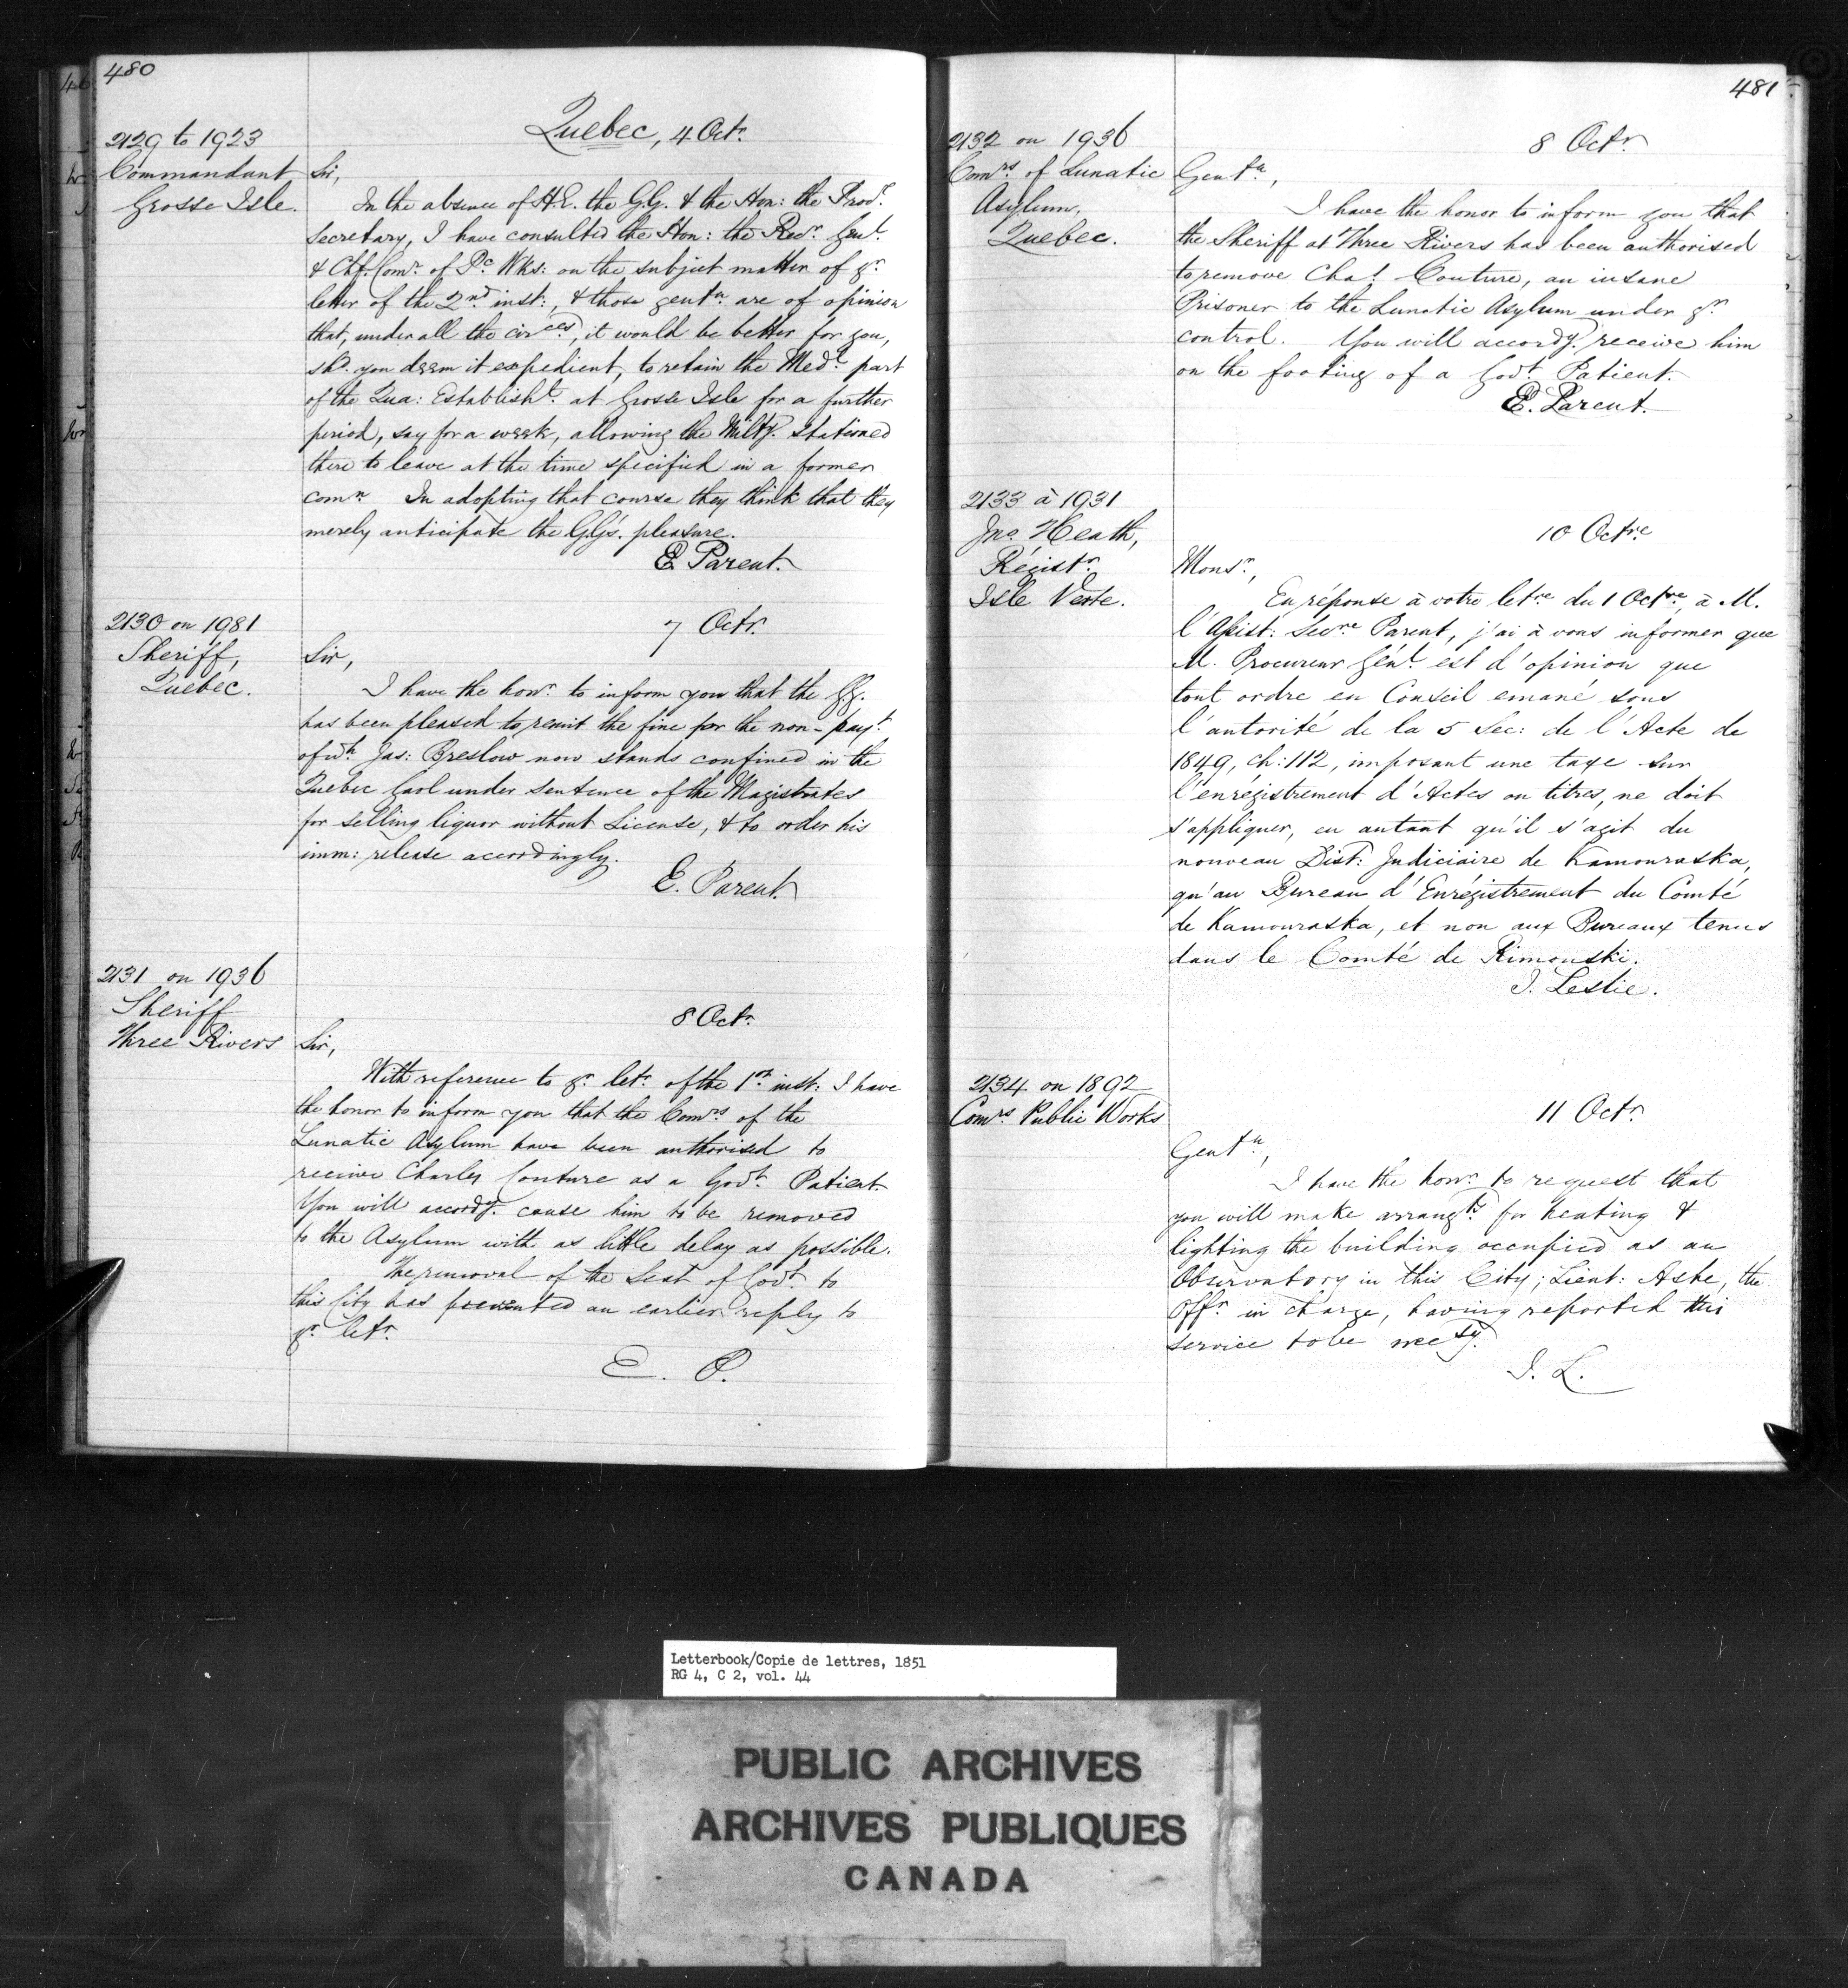 480
2129 to 1923
Commandant
Grosse Isle.
Quebec, 4 Octr.
Sir,
In the absence of H.E. the G.G. & the Hon: the Provl.
Secretary, I have consulted the Hon: the Recr. Genl.
& Chf. Comr. of Pc. Wks: on the subject matter of yr.
letter of the 2nd inst:, & those gentn. are of opinion
that, under all the circes., it would be better for you,
shd. you deem it expedient, to retain the Medl. part
of the Qua: Establisht. at Grosse Isle for a further
period, say for a week, allowing the Milty. stationed
there to leave at the time specified in a former
comn. In adopting that course they think that they
merely anticipate the G.G's. pleasure.
E. Parent.
2130 on 1981
Sheriff,
Quebec.
7 Octr.
Sir,
I have the honr. to inform you that the G.G.
has been pleased to remit the fine for the non-payt.
of wh. Jas: Breslow now stands confined in the
Quebec Gaol under sentence of the Magistrates
for selling liquor without License, & to order his
imm: release accordingly.
E. Parent.
2131 on 1936
Sheriff
Three Rivers
8 Octr.
Sir,
With reference to yr. letr. of the 1st. inst: I have
the honor to inform you that the Comrs of the
Lunatic Asylum have been authorised to
receive Charles Couture as a Govt. Patient.
You will accordy. cause him to be removed
to the Asylum with as little delay as possible.
The removal of the Seat of Govt. to
this City has prevented an earlier reply to
yr. letr.
E. P.
481
2132 on 1936
Comrs. of Lunatic
Asylum,
Quebec.
8 Octr.
Gentn.,
I have the honor to inform you that
the Sheriff at Three Rivers has been authorised
to remove Chas. Couture, an insane
Prisoner to the Lunatic Asylum under yr.
control. You will accordy. receive him
on the footing of a Govt. Patient.
E. Parent.
2133 à 1931
Jno. Heath,
Régistr.
Isle Verte.
10 Octre.
Monsr.,
En réponse à votre letre. du 1 Octre., à M.
l'Assist: Secre. Parent, j'ai à vous informer que
M. Procureur Génl. est d'opinion que
tout ordre en Conseil emané sous
l'autorité de la 5 Sec: de l'Acte de
1849, ch: 112, imposant une taxe sur
l'enrégistrement d'Actes ou titres, ne doit
s'appliquer, en autant qu'il s'agit du
nouveau Dist: Judiciaire de Kamouraska,
qu'au Bureau d'Enrégistrement du Comté
de Kamouraska, et non aux Bureaux tenus
dans le Comté de Rimouski.
J. Leslie.
2134 on 1892
Comrs. Public Works
11 Octr.
Gentn.,
I have the honr. to request that
you will make arrangts. for heating &
lighting the building occupied as an
Observatory in this City; Lieut: Ashe, the
Offr. in charge, having reported this
service to be necesy.
J. L.
Letterbook/Copie de lettres, 1851
RG 4, C 2, vol. 44
PUBLIC ARCHIVES
ARCHIVES PUBLIQUES
CANADA